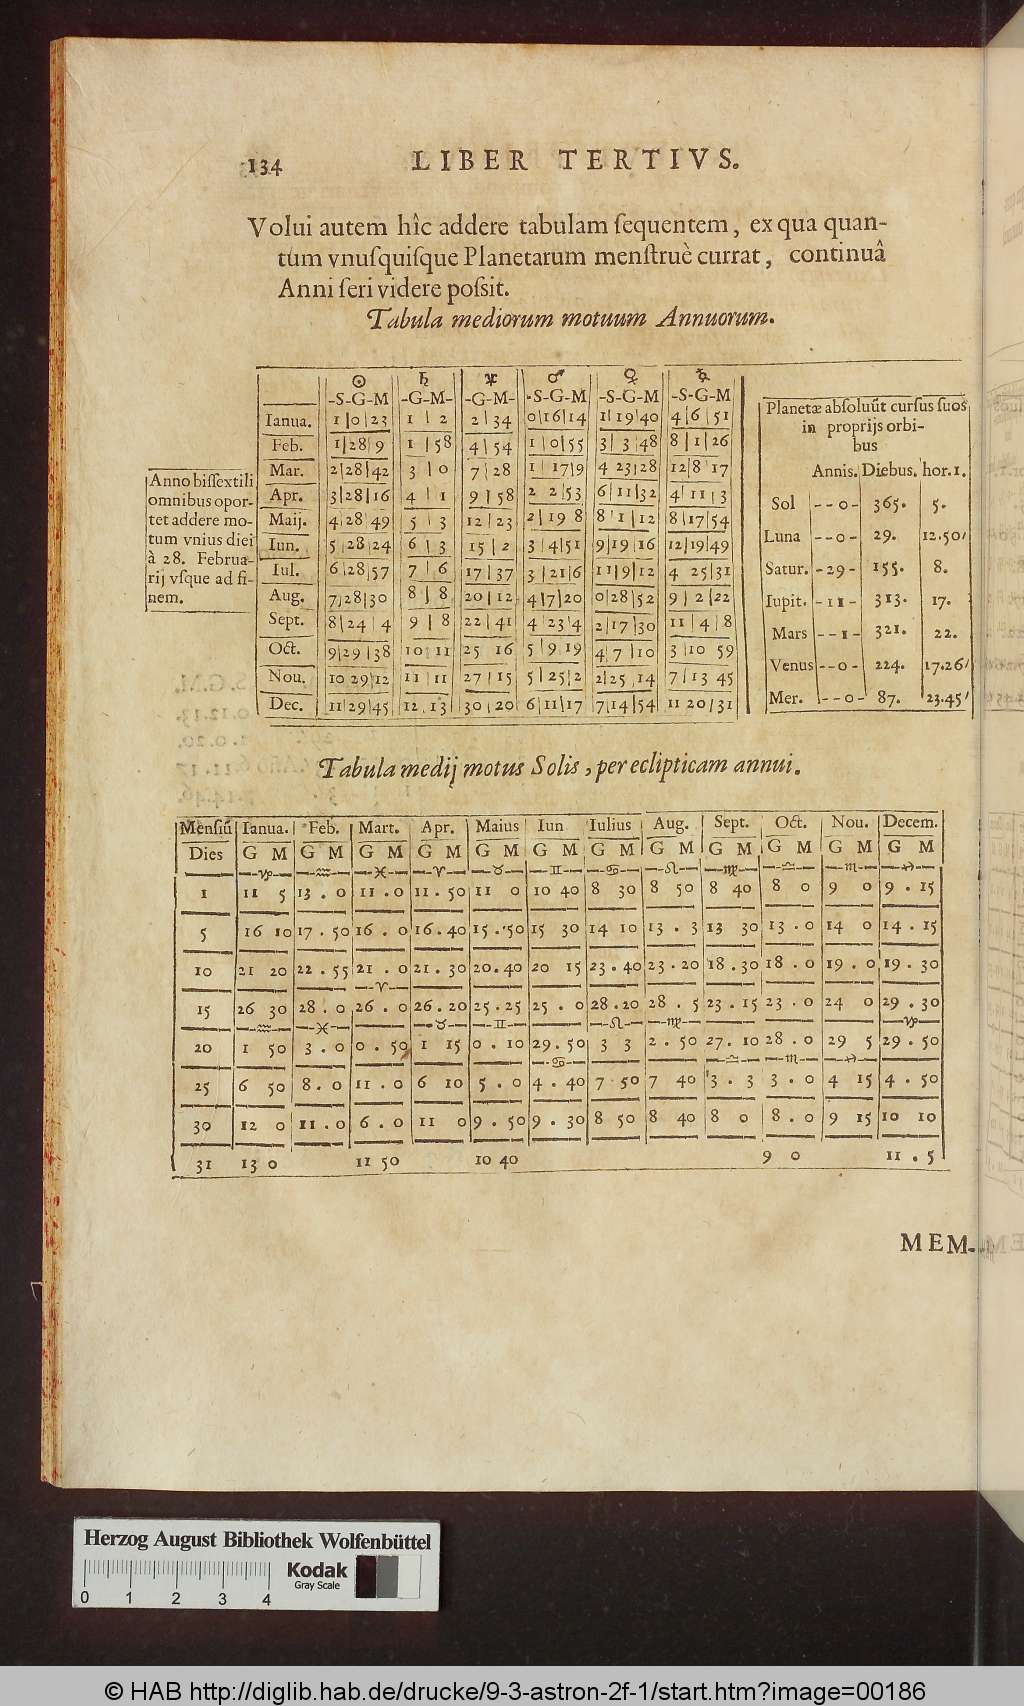 134 LIBER TERTIVS.
Volui autem hîc addere tabulam ſequentem, ex qua quan-
tum vnuſquiſque Planetarum menſtruè currat, continuâ
Anni ſeri videre poſsit.
Tabula mediorum motuum Annuorum.
☉ ♄ ♃ ♂ ♀ ☿
-S-G-M -G-M- -G-M- -S-G-M -S-G-M -S-G-M
Ianua. 1|0|23 1|2 2|34 0|16|14 1|19|40 4|6|51
Feb. 1|28|9 1|58 4|54 1|0|55 3|3|48 8|1|26
Mar. 2|28|42 3|0 7|28 1|17|9 4 23|28 12|8|17
Apr. 3|28|16 4|1 9|58 2 2|53 6|11|32 4|11|3
Maij. 4|28|49 5|3 12|23 2|19 8 8|1|12 8|17|54
Iun. 5|28|24 6|3 15|2 3|4|51 9|19|16 12|19|49
Iul. 6|28|57 7|6 17|37 3|21|6 11|9|12 4 25|31
Aug. 7|28|30 8|8 20|12 4|7|20 0|28|52 9|2|22
Sept. 8|24|4 9|8 22|41 4 23|4 2|17|30 11|4|8
Oct. 9|29|38 10|11 25 16 5|9 19 4|7|10 3|10 59
Nou. 10 29|12 11|11 27|15 5|25|2 2|25|14 7|13 45
Dec. 11|29|45 12|13 30|20 6|11|17 7|14|54 11 20|31
Anno biſſextili
omnibus opor-
tet addere mo-
tum vnius diei
à 28. Februa-
rij vſque ad fi-
nem.
Planetæ abſoluūt curſus ſuos
in proprijs orbi-
bus
Annis. Diebus. hor. 1.
Sol --0- 365. 5.
Luna --0- 29. 12.50
Satur. -29- 155. 8.
Iupit. -11- 313. 17.
Mars --1- 321. 22.
Venus --0- 224. 17.26
Mer. --0- 87. 23.45
Tabula medij motus Solis, per eclipticam annui.
Menſiū Ianua. Feb. Mart. Apr. Maius Iun Iulius Aug. Sept. Oct. Nou. Decem.
Dies G M G M G M G M G M G M G M G M G M G M G M G M
♑ ♒ ♓ ♈ ♉ ♊ ♋ ♌ ♍ ♎ ♏ ♐
1 11 5 13 . 0 11 . 0 11 . 50 11 0 10 40 8 30 8 50 8 40 8 0 9 0 9 . 15
5 16 10 17 . 50 16 . 0 16 . 40 15 . 50 15 30 14 10 13 . 3 13 30 13 . 0 14 0 14 . 15
10 21 20 22 . 55 21 . 0 21 . 30 20 . 40 20 15 23 . 40 23 . 20 18 . 30 18 . 0 19 . 0 19 . 30
♈
15 26 30 28 . 0 26 . 0 26 . 20 25 . 25 25 . 0 28 . 20 28 . 5 23 . 15 23 . 0 24 0 29 . 30
♒ ♓ ♉ ♊ ♌ ♍ ♑
20 1 50 3 . 0 0 . 50 1 15 0 . 10 29 . 50 3 3 2 . 50 27 . 10 28 . 0 29 5 29 . 50
♋ ♎ ♏ ♐
25 6 50 8 . 0 11 . 0 6 10 5 . 0 4 . 40 7 50 7 40 3 . 3 3 . 0 4 15 4 . 50
30 12 0 11 . 0 6 . 0 11 0 9 . 50 9 . 30 8 50 8 40 8 0 8 . 0 9 15 10 10
31 13 0 11 50 10 40 9 0 11 . 5
MEM-
Herzog August Bibliothek Wolfenbüttel
Kodak
Gray Scale
0 1 2 3 4
© HAB http://diglib.hab.de/drucke/9-3-astron-2f-1/start.htm?image=00186